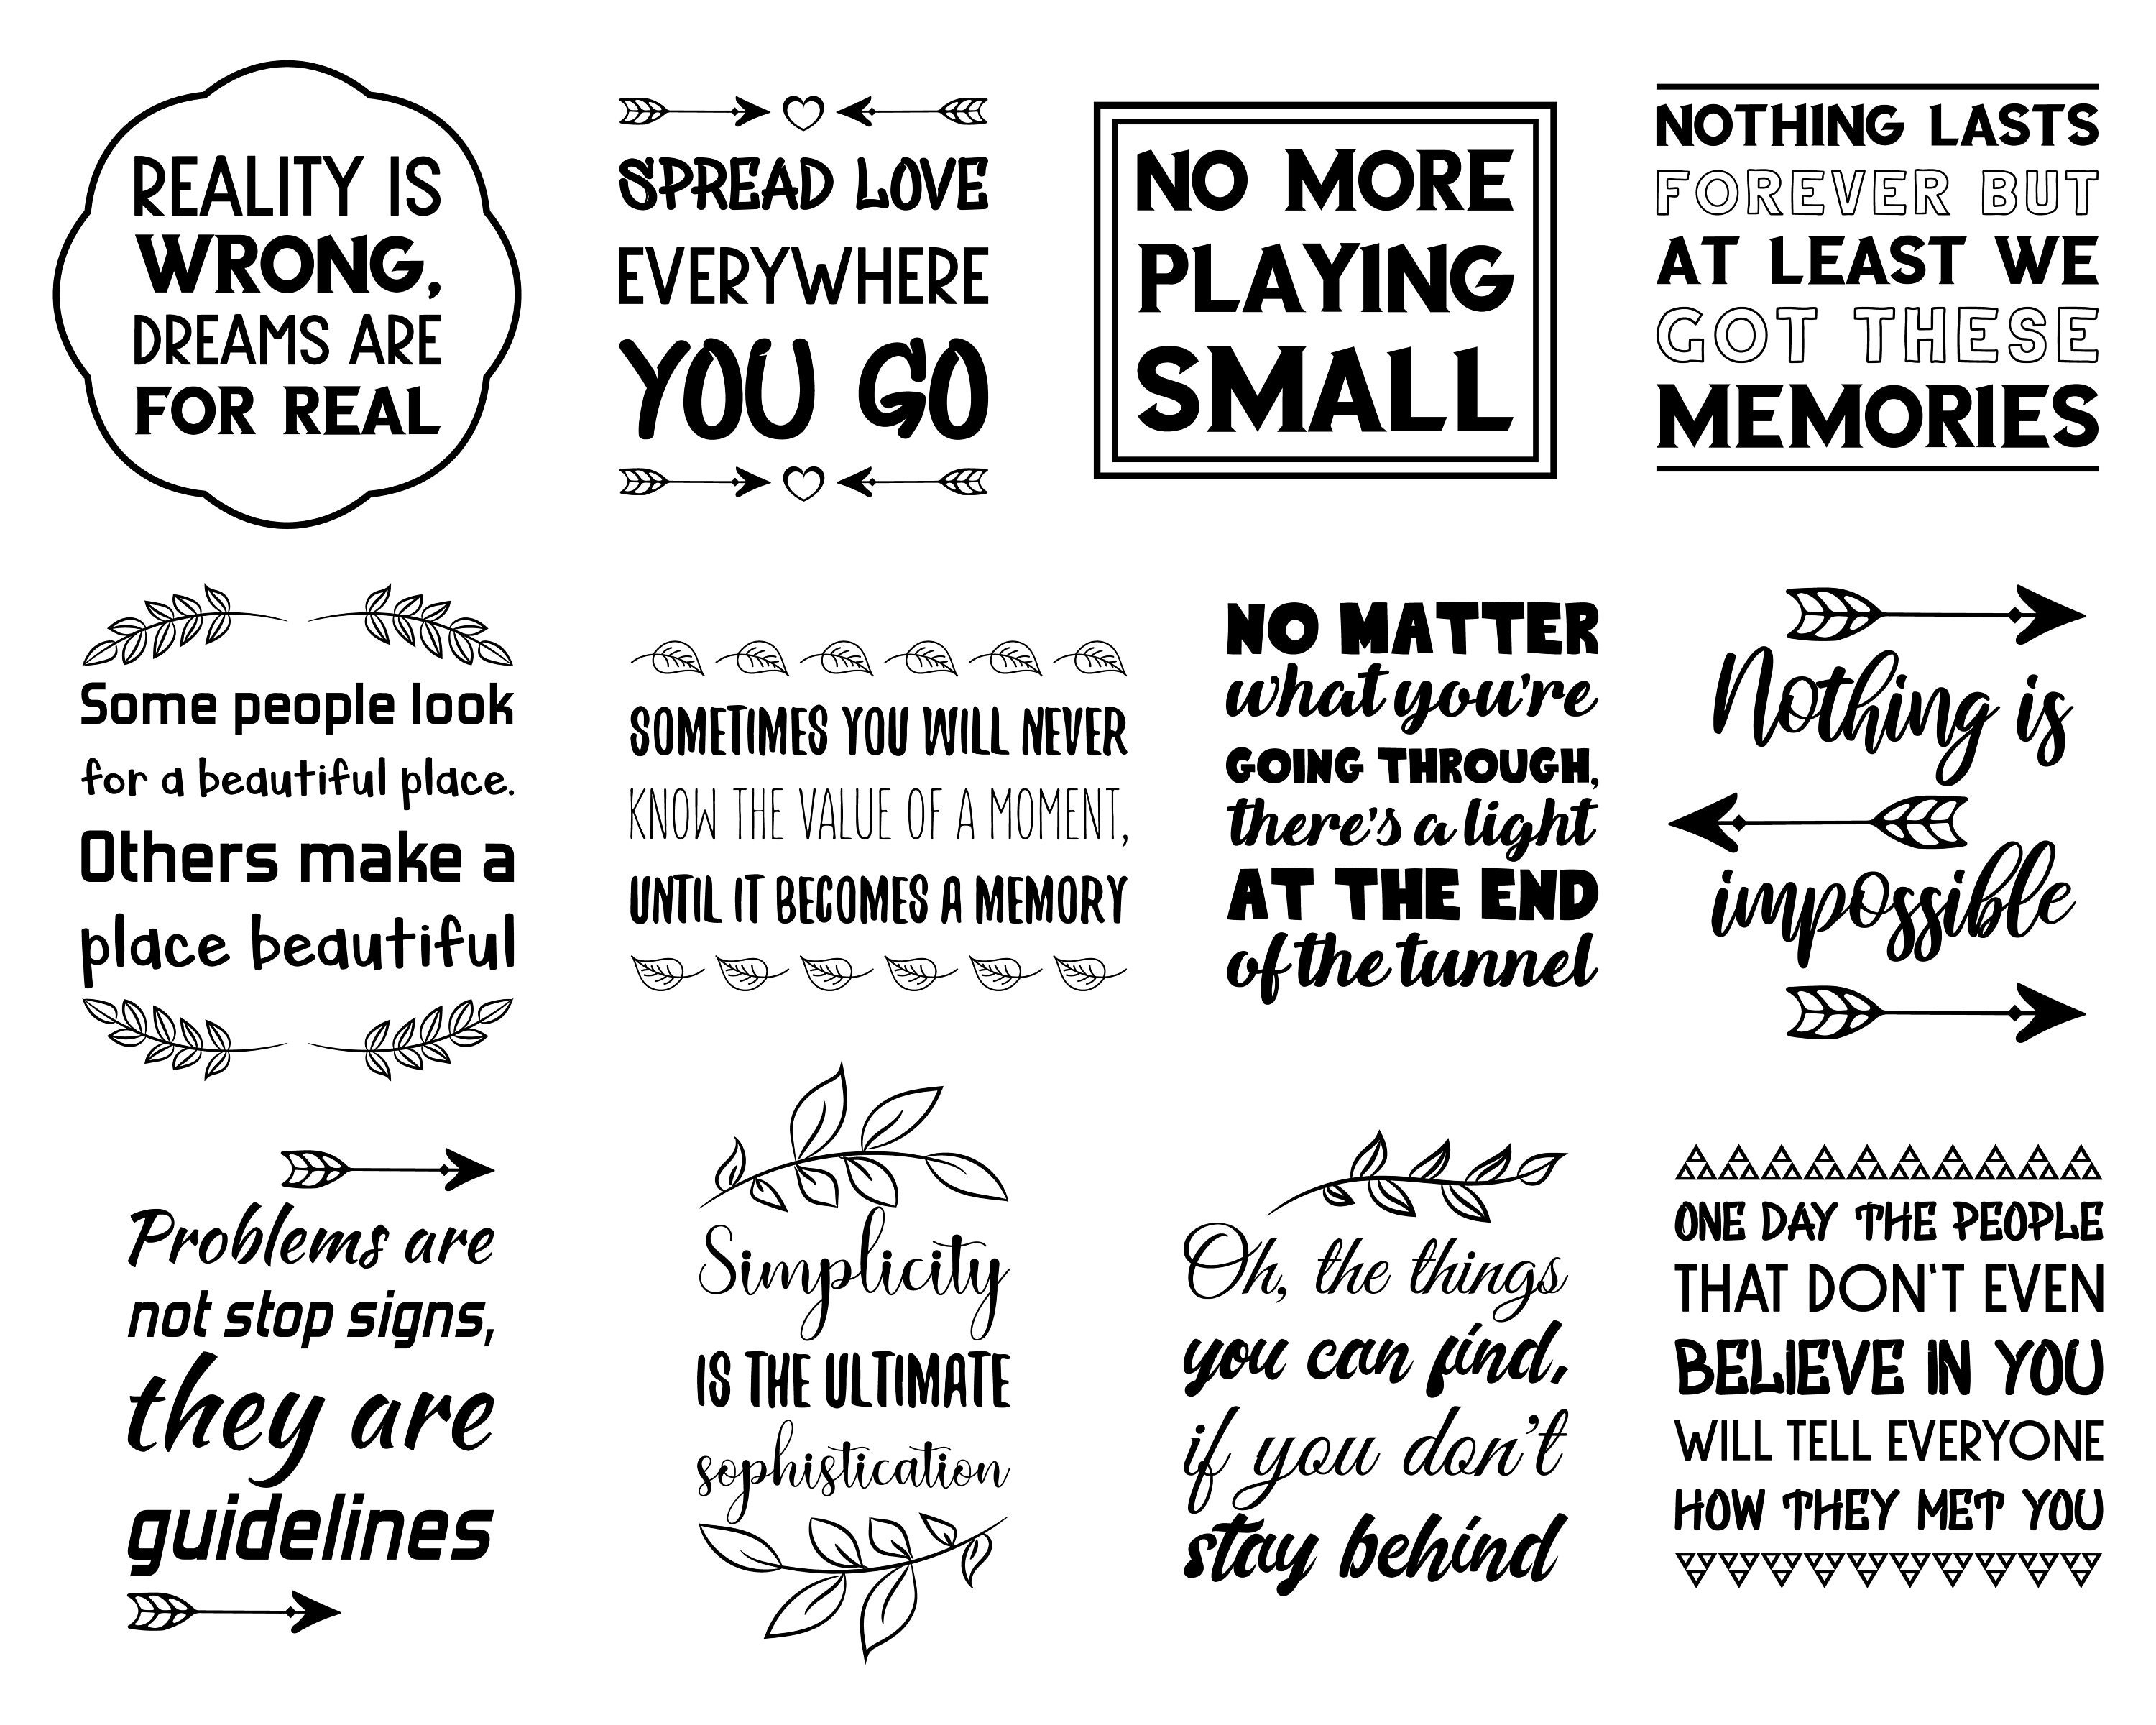 REALITY IS
WRONG,
DREAMS ARE
FOR REAL
SPREAD LOVE
EVERYWHERE
YOU GO
NO MORE
PLAYING
SMALL
NOTHING LASTS
FOREVER BUT
AT LEAST WE
GOT THESE
MEMORIES
Some people look
for a beautiful place.
Others make a
place beautiful
SOMETIMES YOU WILL NEVER
KNOW THE VALUE OF A MOMENT,
UNTIL IT BECOMES A MEMORY
NO MATTER
what you're
GOING THROUGH,
there's a light
AT THE END
of the tunnel
Nothing is
impossible
Problems are
not stop signs,
they are
guidelines
Simplicity
IS THE ULTIMATE
sophistication
Oh, the things
you can find,
if you don't
stay behind
ONE DAY THE PEOPLE
THAT DON'T EVEN
BELIEVE IN YOU
WILL TELL EVERYONE
HOW THEY MET YOU